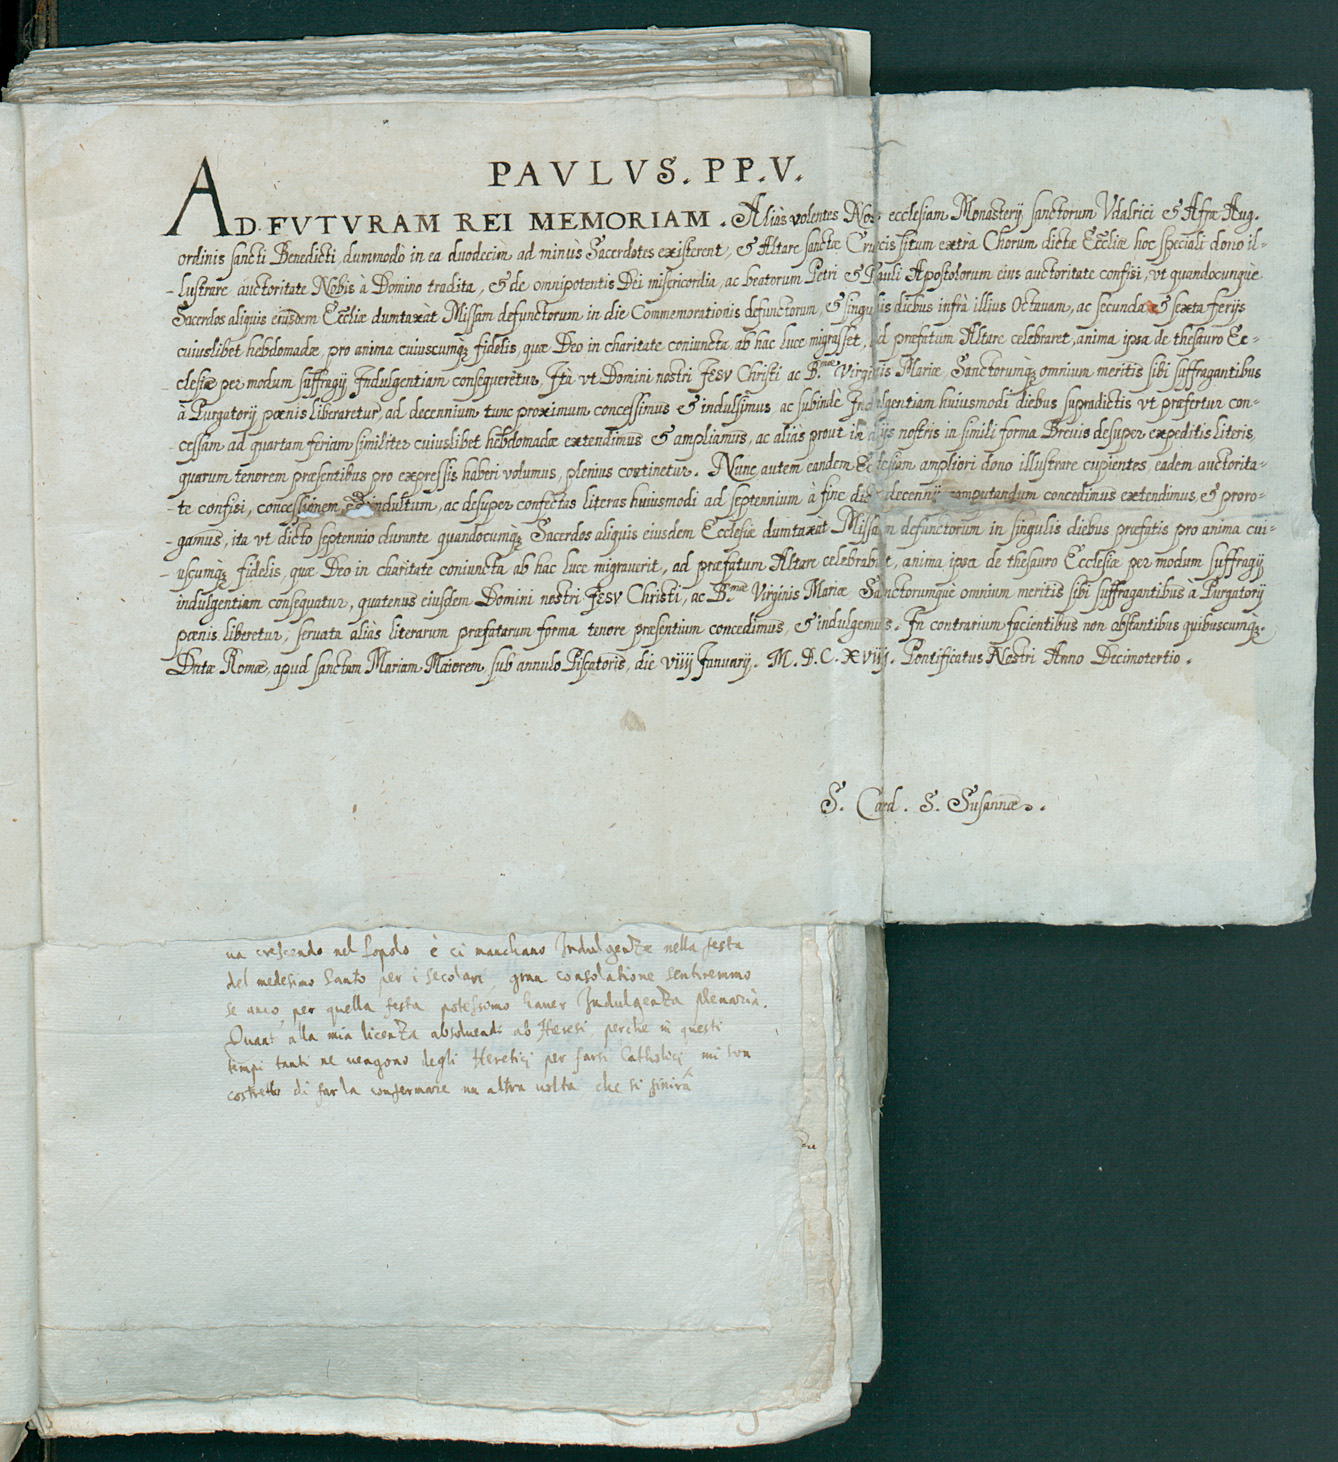 PAVLVS. PP. V.
AD FVTVRAM REI MEMORIAM. Aliàs volentes Nos ecclesiam Monasterij sanctorum Vdalrici & Afræ Aug.
ordinis sancti Benedicti, dummodo in ea duodecim ad minùs Sacerdotes existerent, & Altare sanctæ Crucis situm extrà Chorum dictæ Eccliæ hoc speciali dono il-
lustrare auctoritate Nobis à Domino tradita, & de omnipotentis Dei misericordia, ac beatorum Petri & Pauli Apostolorum eius auctoritate confisi, vt quandocunquè
Sacerdos aliquis eiusdem Eccliæ dumtaxàt Missam defunctorum in die Commemorationis defunctorum, & singulis diebus infrà illius Octauam, ac secunda & sexta ferijs
cuiuslibet hebdomadæ, pro anima cuiuscumq; fidelis, quæ Deo in charitate coniuncta ab hac luce migrasset, ad præfatum Altare celebraret, anima ipsa de thesauro Ec-
clesiæ per modum suffragij Indulgentiam consequeretur, Ità vt Domini nostri Jesv Christi ac B.mæ Virginis Mariæ Sanctorumq; omnium meritis sibi suffragantibus
à Purgatorij pœnis liberaretur, ad decennium tunc proximum concessimus & indulsimus, ac subindè Indulgentiam huiusmodi diebus supradictis vt præfertur con-
cessam ad quartam feriam similiter cuiuslibet hebdomadæ extendimus & ampliamus, ac aliàs prout in alijs nostris in simili forma Breuis desuper expeditis literis,
quarum tenorem præsentibus pro expressis haberi volumus, plenius continetur. Nunc autem eandem Ecclesiam ampliori dono illustrare cupientes, eadem auctorita-
te confisi, concessionem & indultum, ac desuper confectas literas huiusmodi ad septennium à fine dicti decennij computandum concedimus extendimus, & proro-
gamus, ita vt dicto septennio durante quandocumq; Sacerdos aliquis eiusdem Ecclesiæ dumtaxat Missam defunctorum in singulis diebus præfatis pro anima cui-
uscumq; fidelis, quæ Deo in charitate coniuncta ab hac luce migrauerit, ad præfatum Altare celebrabit, anima ipsa de thesauro Ecclesiæ per modum suffragij
indulgentiam consequatur, quatenus eiusdem Domini nostri Jesv Christi, ac B.mæ Virginis Mariæ Sanctorumque omnium meritis sibi suffragantibus a Purgatorij
pœnis liberetur, seruata aliàs literarum præfatarum forma tenore præsentium concedimus, & indulgemus. In contrarium facientibus non obstantibus quibuscumq;.
Datæ Romæ, apud sanctam Mariam Maiorem, sub annulo Piscatoris, die viiij Januarij. M. D. C. XViij. Pontificatus Nostri Anno Decimotertio.
S. Card. S. Susannæ.
ua crescendo nel Popolo è ci manchano Indulgenze nella festa
del medesimo Santo per i secolari, gran consolatione sentiremmo
se anco per quella festa potessimo hauer Indulgenza plenaria.
Quant' alla mia licenza absoluendi ab Heresi, perche in questi
tempi tanti ne uengono degli Heretici per farsi Catholici mi son
costretto di far la confermare un altra uolta che si finirà